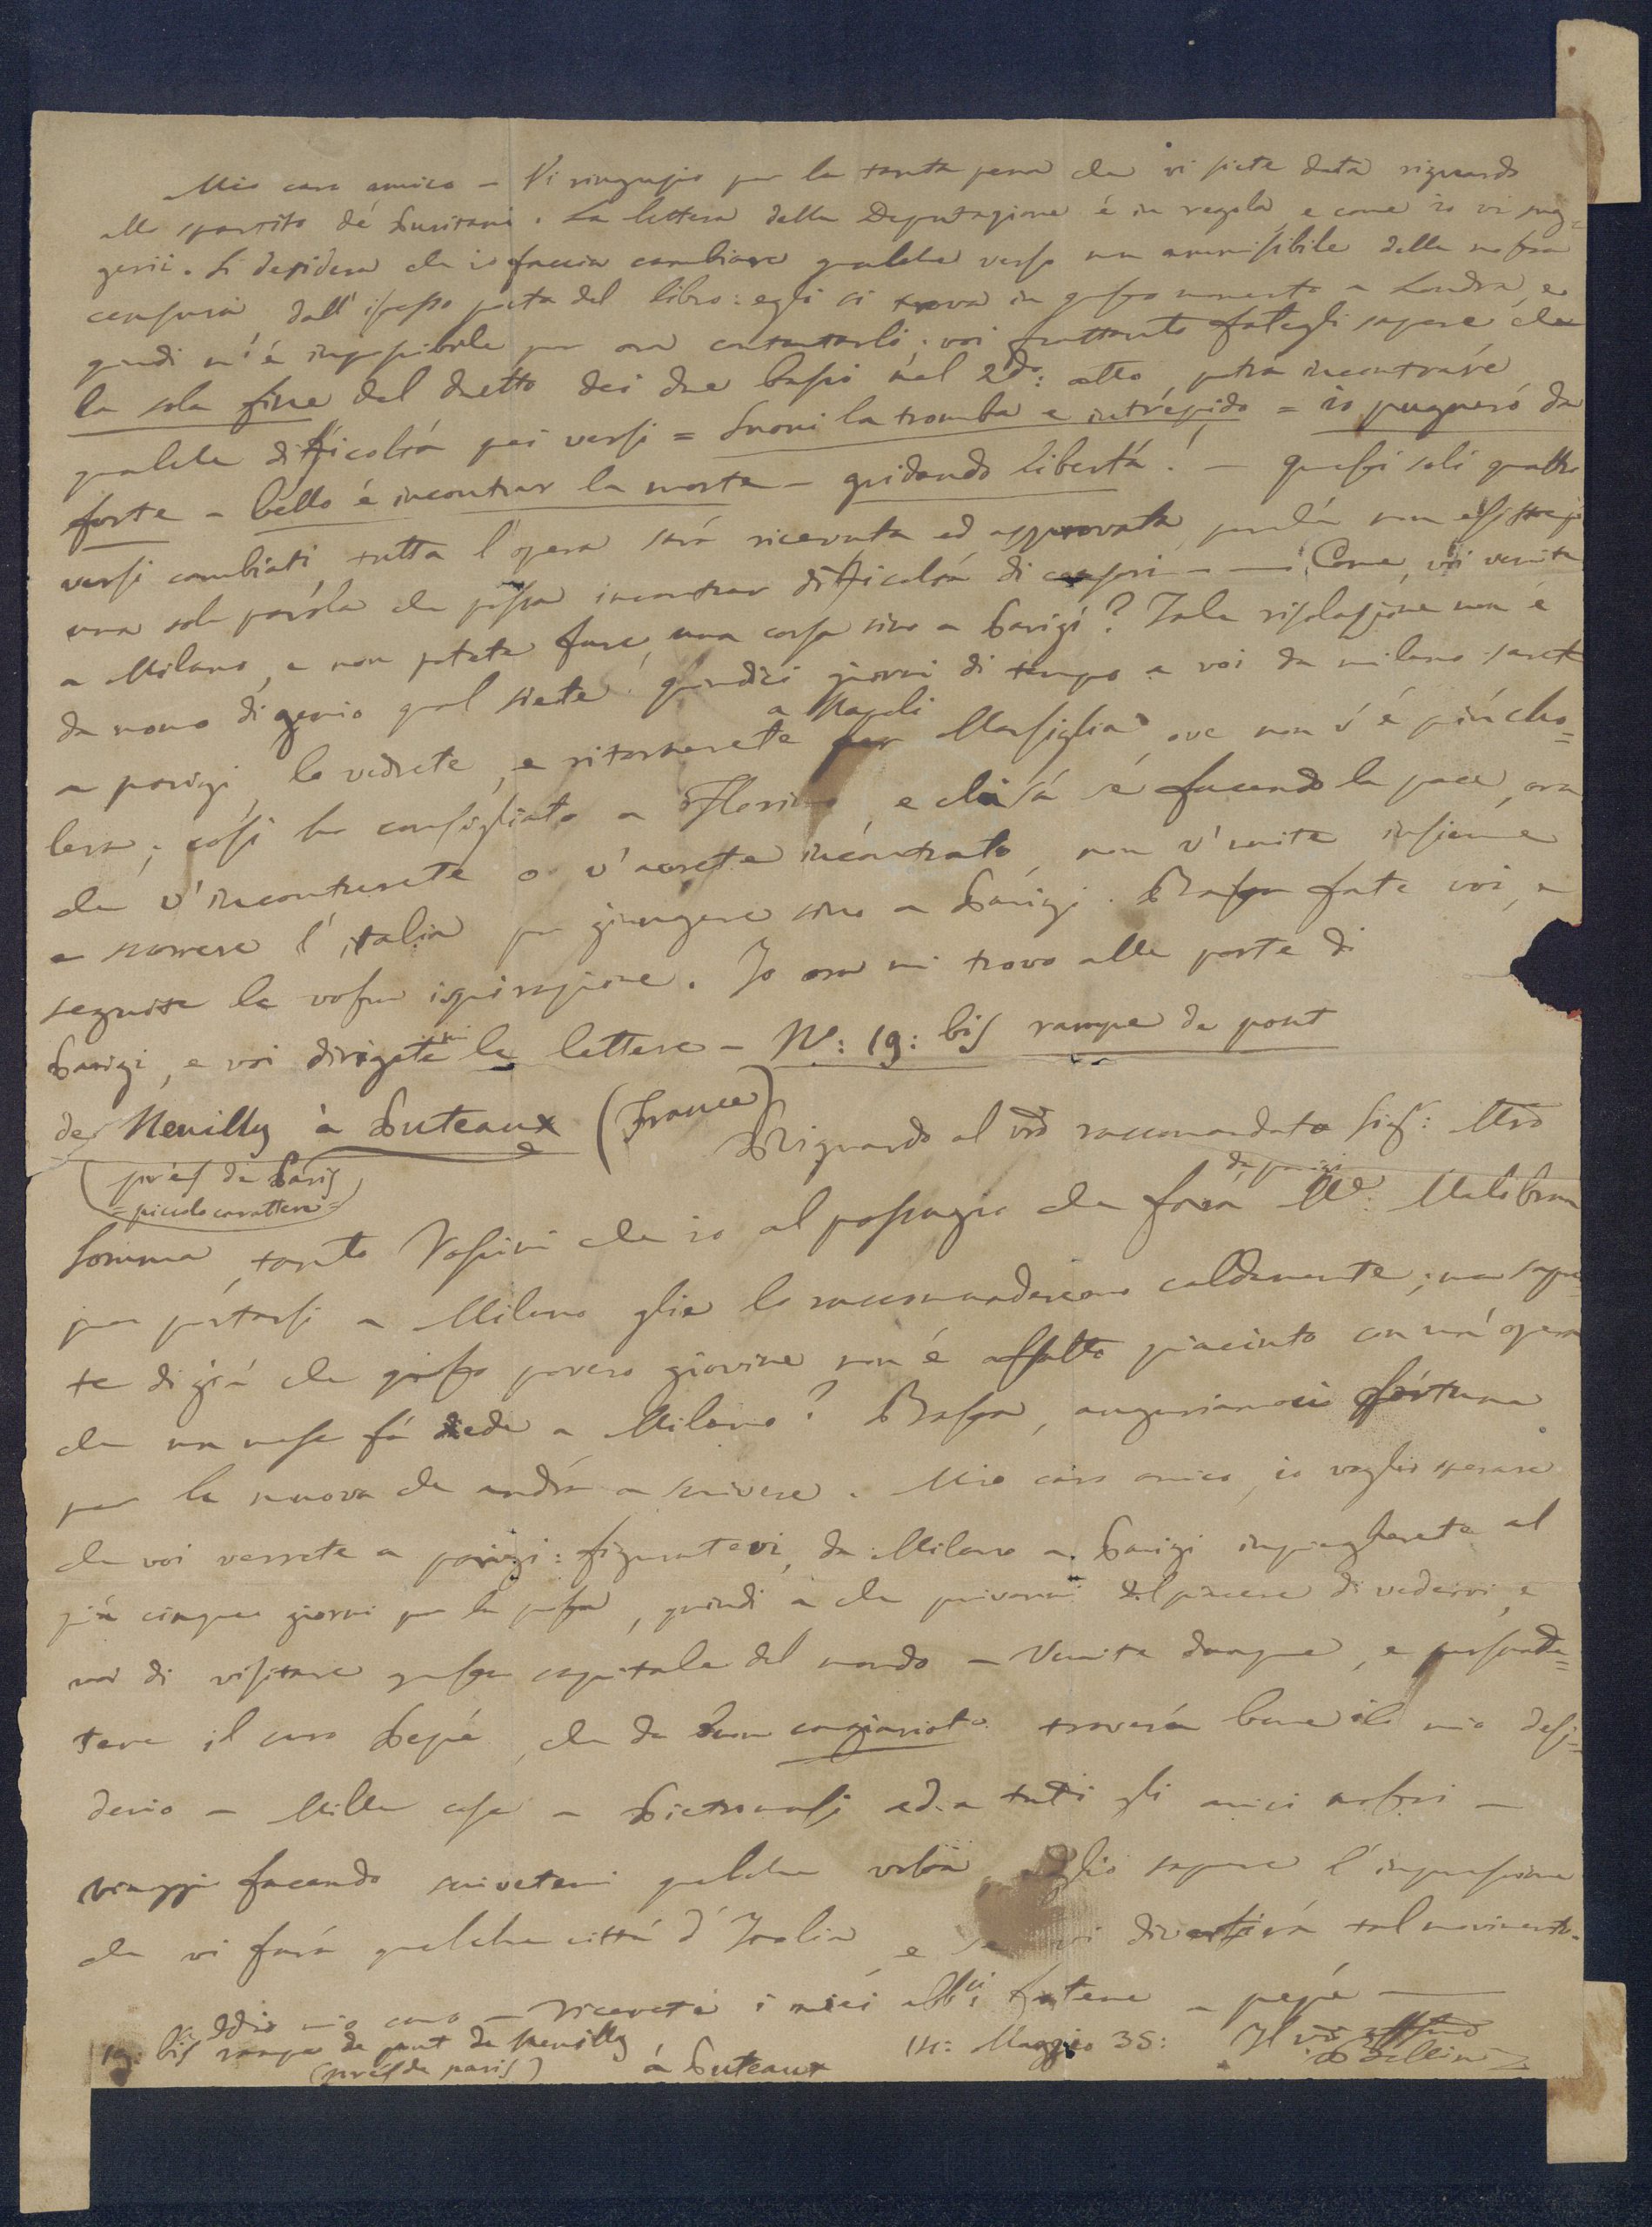 Mio caro amico – Vi ringrazio per la tanta pena che vi siete data riguardo
allo spartito de' Puritani. La lettera della Deputazione é in regola, e come io vi sug=
gerii. Si desidera che io faccia cambiare qualche verso non ammissibile della nostra
censura, dall' istesso poeta del libro: egli si trova in questo momento a Londra, e
quindi m'é impossibile per ora contentarli; voi frattanto fategli sapere che
la sola fine del duetto dei due bassi nel 2do: atto, potrá incontrare
qualche difficoltá pei versi = Suoni la tromba e intrepido = io pugneró da
forte – bello é incontrar la morte – gridando libertá! – questi soli quattro
versi cambiati, tutta l'opera sará ricevuta ed approvata, perché non esiste piú
una sola parola che possa incontrar difficoltá di censori – — Come, voi venite
a Milano, e non potete fare una corsa sino a Parigi? Tale risoluzione non é
da uomo di genio qual siete! quindici giorni di tempo e voi da milano sarete
a parigi, la vedrete, e ritornerete a Napoli per Marsiglia, ove non v'é piú cho=
lera; cosí ho consigliato a Florimo, e chi sá se facendo la pace, ora
che v'incontrerete o v'avrete incontrato, non v'unite insieme
a scorrere l'italia per giungere sino a Parigi. Basta fate voi, e
seguite la vostra ispirazione. Io ora mi trovo alle porte di
Parigi, e voi dirigetemi le lettere – N: 19: bis rampe de pont
de Neuilly à Puteaux (France)
(prés de Paris
= piccolo carattere =)
Riguardo al vro raccomandato Sigr: Mro
Somma, tanto Vaccini che io al passaggio che fará da parigi Me. Malibran
per portarsi a Milano glie lo raccomanderemo caldamente; ma sape=
te digiá che questo povero giovine non é affatto piaciuto con un'opera
che un mese fá diede a Milano? Basta, auguriamoci fortuna
per la nuova che andrá a scrivere. Mio caro amico, io voglio sperare
che voi verrete a parigi: figuratevi, da Milano a Parigi impiegherete al
piú cinque giorni per la posta, quindi a che privarmi del piacere di vedervi, e
voi di visitare questa capitale del mondo – Venite dunque, e persuade=
tene il caro Pepé, che da buon cangiariota troverá bene il mio desi=
derio – Mille cose a Pietromasi ed a tutti gli amici nostri –
viaggi facendo scrivetemi qualche volta, voglio sapere l'impressione
che vi fará qualche cittá d'Italia, e se vi divertirá tal movimento.
Addio mio caro – ricevete i miei abbci, fatene a pepé —
19: bis rampe de pont de Neuilly
(prés de paris) à Puteaux
14: Maggio 35: Il vro affmo
Bellini